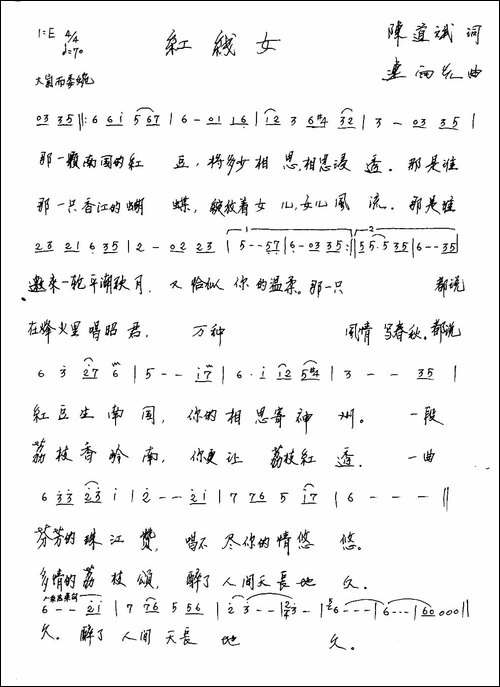 1=E 4/4 ♩=70
紅線女
陳道斌 词
曲
大氣而委婉
03 35 ‖: 6 6 i 5 67 | 6 - 01 16 | 12 3 6#4 32 | 3 - 03 35 |
那一颗南国的紅 豆, 将多少相 思,相思浸 透。 那是谁
那一只香江的蝴 蝶, 绽放着女 儿,女儿風 流。 那是谁
23 21 6 35 | 2 - 02 23 | 5 - - 57 | 6 - 03 35 :‖ 55·5 35 | 6 - - 35 |
邀来一轮平湖秋 月, 又 恰似 你 的温柔。那一只 都说
在烽火里唱昭 君, 万种 風情 写春秋。都说
6 3 27 6 | 5 - - i7 | 6 · i i2 5#4 | 3 - - 35 |
紅豆生南国, 你的相思寄神 州。 一段
荔枝香岭南, 你更让 荔枝紅 透。 一曲
6 33 23 i | 2 - - 2i | 7 76 5 i7 | 6 - - - ‖
芬芳的珠江赞, 唱不 尽你的情悠 悠。
多情的荔枝頌, 醉了 人间天長地 久。
6 - - 2i | 7 76 5 56 | 2 3 - - | 3 - | 6 - - - | 6 - - - | 60 000 ‖
久。 醉了 人间 天長 地 久。